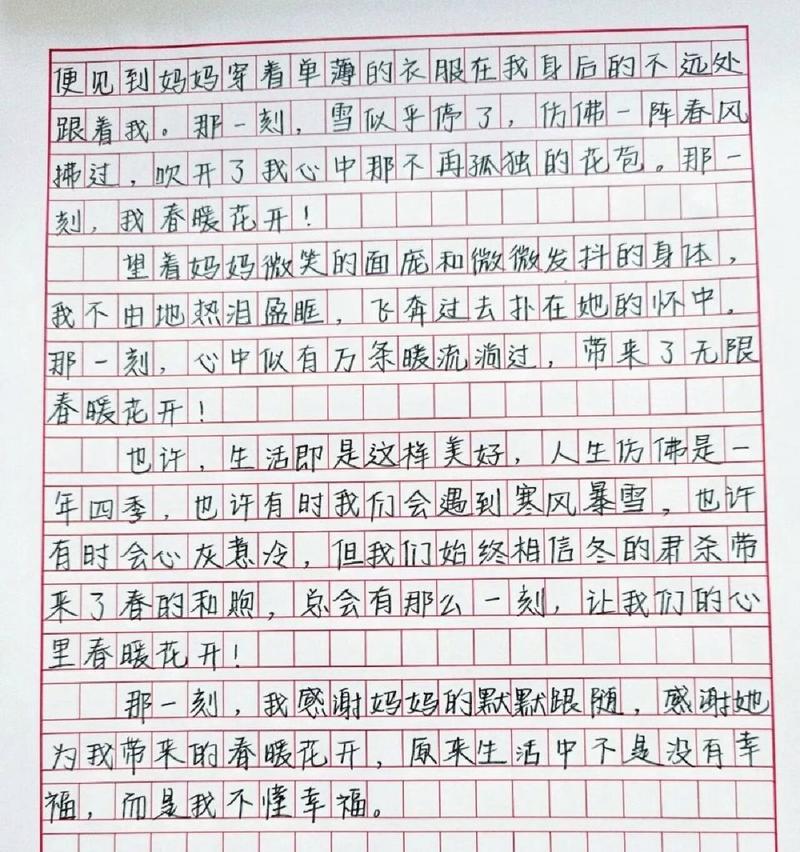 便见到妈妈穿着单薄的衣服在我身后的不远处
跟着我。那一刻，雪似乎停了，仿佛一阵春风
拂过，吹开了我心中那不再孤独的花苞。那一
刻，我春暖花开！
望着妈妈微笑的面庞和微微发抖的身体，
我不由地热泪盈眶，飞奔过去扑在她的怀中。
那一刻，心中似有万条暖流淌过，带来了无限
春暖花开！
也许，生活即是这样美好，人生仿佛是一
年四季，也许有时我们会遇到寒风暴雪，也许
有时会心灰意冷，但我们始终相信冬的肃杀带
来了春的和煦，总会有那么一刻，让我们的心
里春暖花开！
那一刻，我感谢妈妈的默默跟随，感谢她
为我带来的春暖花开，原来生活中不是没有幸
福，而是我不懂幸福。